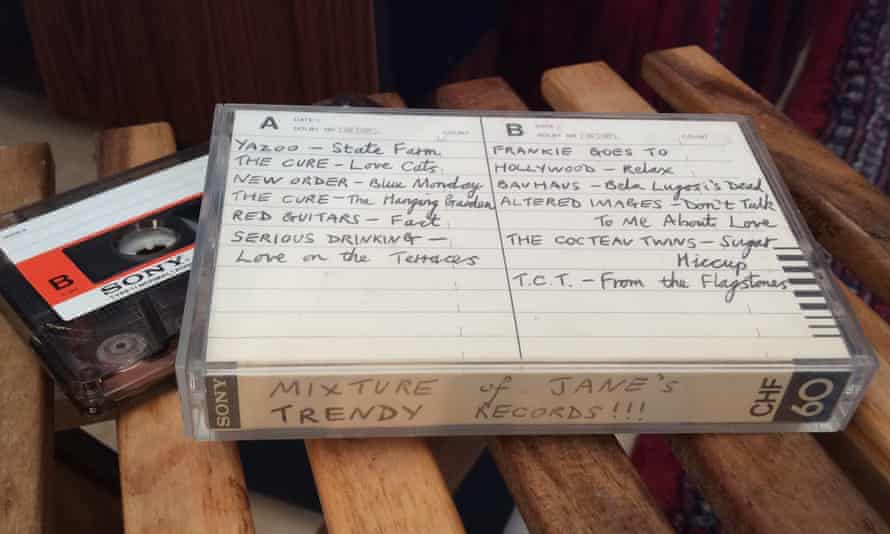 A
DATE:
DOLBY NR
COUNT
YAZOO – State Farm
THE CURE – Love Cats
NEW ORDER – Blue Monday
THE CURE – The Hanging Garden
RED GUITARS – Fact
SERIOUS DRINKING –
Love on the Terraces
B
DATE:
DOLBY NR
COUNT
FRANKIE GOES TO
HOLLYWOOD – Relax
BAUHAUS – Bela Lugosi's Dead
ALTERED IMAGES – Don't Talk
To Me About Love
THE COCTEAU TWINS – Sugar
Hiccup
T.C.T. – From the Flagstones
SONY
MIXTURE of JANE'S
TRENDY RECORDS!!!
CHF
60
B
SONY